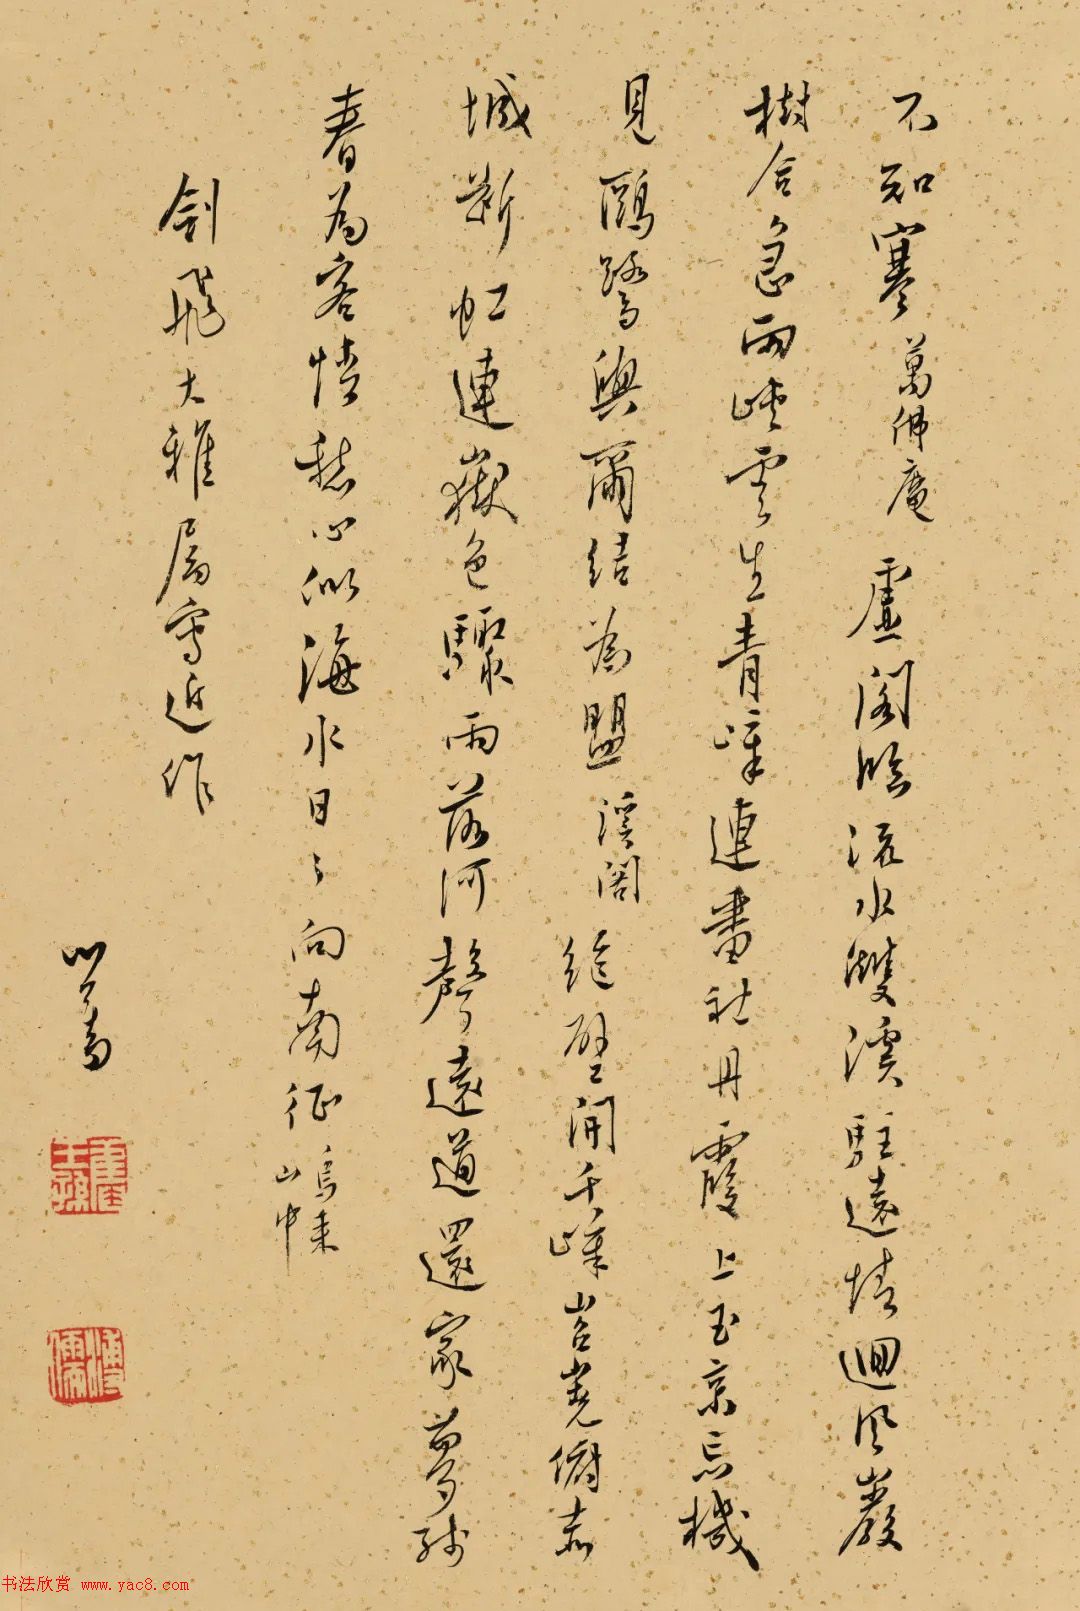 不知寒萬佛庵虛閣臨流水雙溪駐遠情迴風巖
樹合急雨峽雲生青嶂連書社丹霞上玉京忘機
見鷗鷺與爾結為盟溪閣絶壁開千嶂岧嶤俯赤
城斷虹連嶽色驟雨落河聲遠道還家夢殘
春為客情愁心似海水日〻向南征烏來山中
劍飛大雅屬寫近作
心畬
舊王孫
溥儒
书法欣赏 www.yac8.com